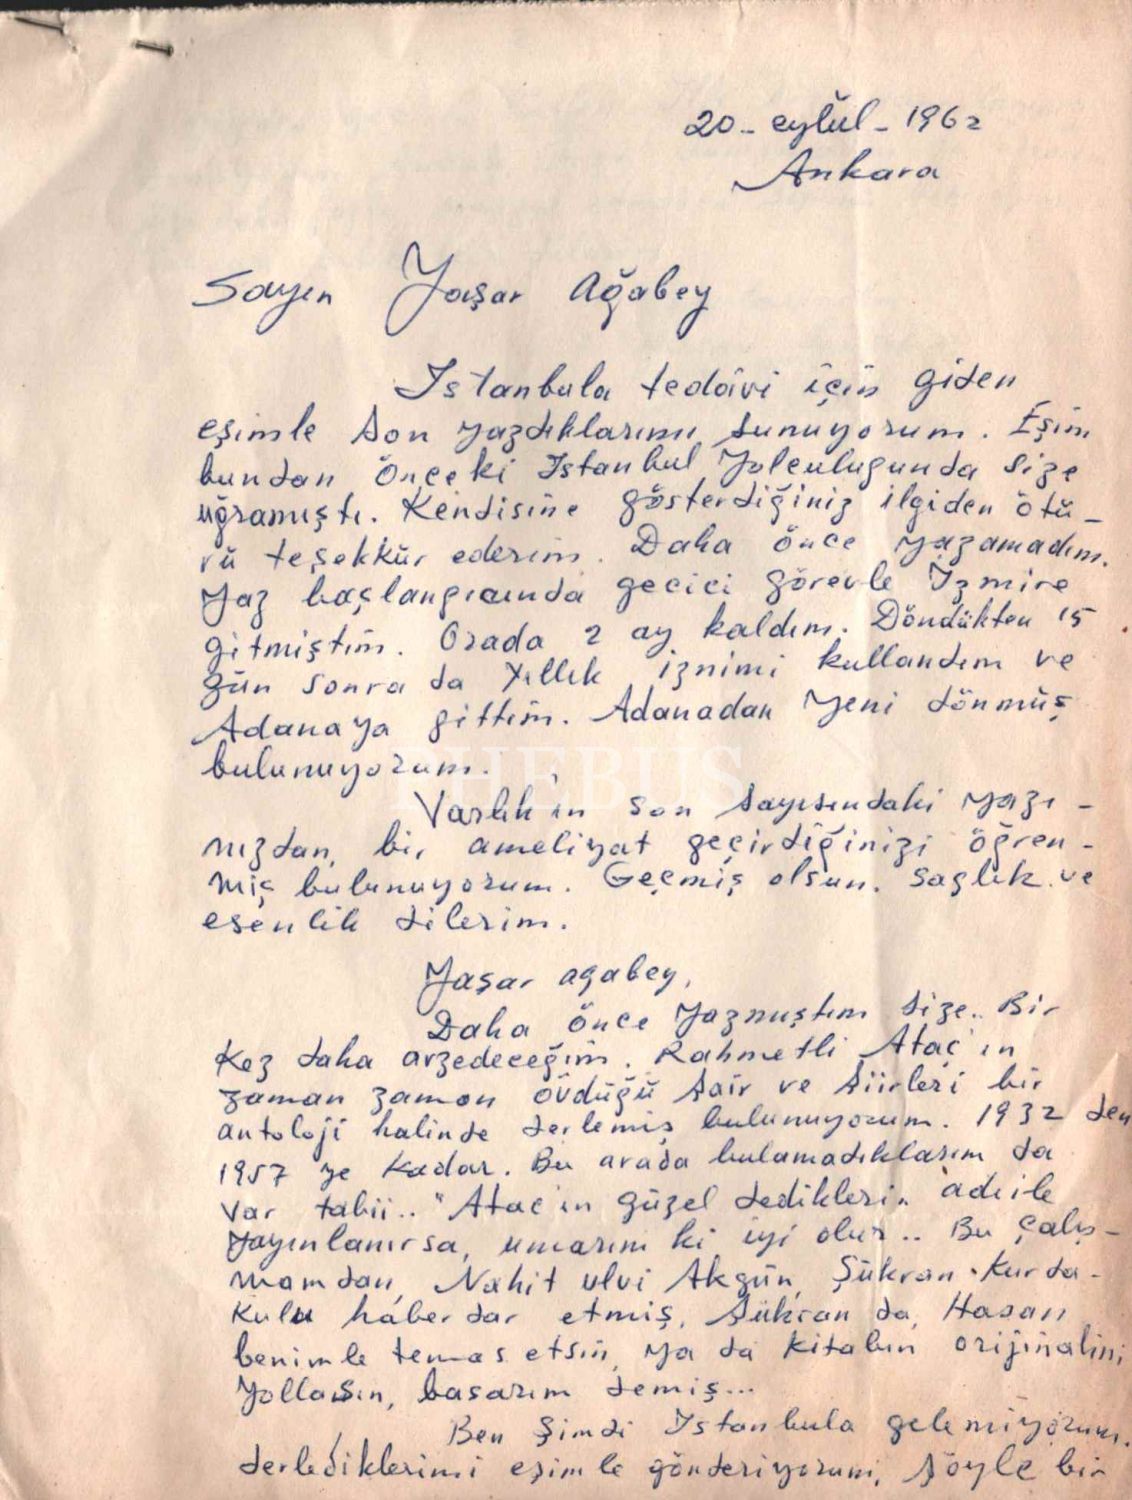 20 - eylûl - 1962
Ankara
Sayın Yaşar Ağabey
Istanbula tedâvi için giden
eşimle son yazdıklarımı sunuyorum. Eşim
bundan önceki Istanbul yolculuğunda size
uğramıştı. Kendisine gösterdiğiniz ilgiden ötü-
rü teşekkür ederim. Daha önce yazamadım.
Yaz başlangıcında geçici görevle İzmire
gitmiştim. Orada 2 ay kaldım. Döndükten 15
gün sonra da yıllık iznimi kullandım ve
Adanaya gittim. Adanadan yeni dönmüş
bulunuyorum.
PHEBUS
Varlık'ın son sayısındaki yazı-
nızdan, bir ameliyat geçirdiğinizi öğren-
miş bulunuyorum. Geçmiş olsun. Sağlık ve
esenlik dilerim.
Yaşar ağabey,
Daha önce yazmıştım size.. Bir
kez daha arzedeceğim. Rahmetli Ataç'ın
zaman zaman övdüğü şair ve şiirleri bir
antoloji halinde derlemiş bulunuyorum. 1932 den
1957 ye kadar. Bu arada bulamadıklarım da
var tabii.. "Ataç'ın güzel dedikleri" adıile
yayınlanırsa, umarım ki iyi olur.. Bu çalış-
mamdan, Nahit ulvi Akgün, Şükran Kurda-
kulu haberdar etmiş, Şükran da, Hasan
benimle temas etsin, ya da kitabın orijinalini
yollasın, basarım demiş...
Ben şimdi Istanbula gelemiyorum.
derlediklerimi eşimle gönderiyorum, şöyle bir